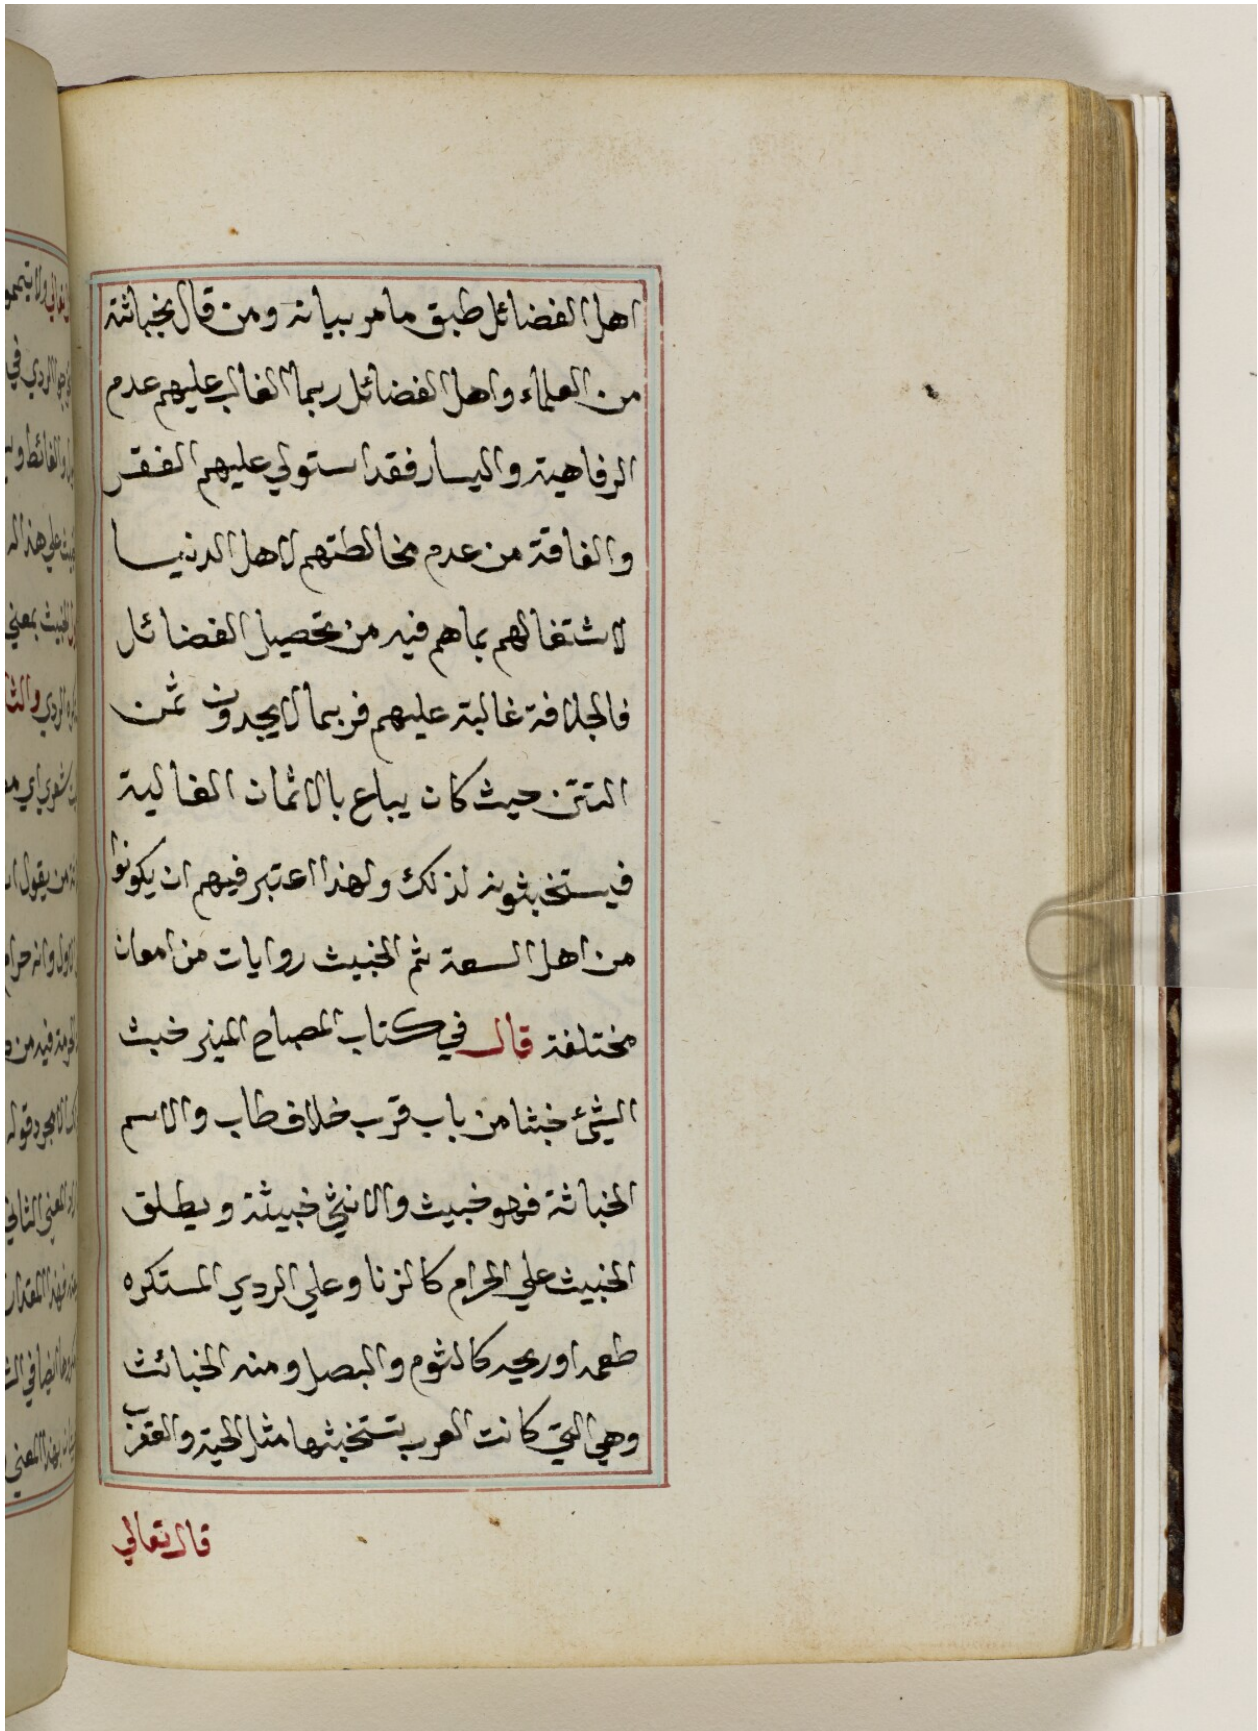 اهل الفضائل طبق ما مر بيانه ومن قال بخباثته
من العلماء واهل الفضائل ربما الغالب عليهم عدم
الرفاهية واليسار فقد استولي عليهم الفقر
والفاقة من عدم مخالطتهم لاهل الدنيا
لاشتغالهم بماهم فيه من تحصيل الفضائل
فالجلافة غالبة عليهم فربما لا يجدون ثمن
التتن حيث كان يباع بالاثمان الغالية
فيستخبثونه لذلك ولهذا اعتبر فيهم ان يكونوا
من اهل السعة ثم الخبيث روايات من امعان
مختلفة قال في كتاب المصباح المنير خبث
الشيئ خبثا من باب قرب خلاف طاب والاسم
الخباثة فهو خبيث والانثي خبيثة ويطلق
الخبيث علي الحرام كالزنا وعلي الردي المستكره
طعمه او ريحه كالثوم والبصل ومنه الخبائث
وهي التي كانت العرب تستخبثها مثل الحية والعقرب
قال تعالي